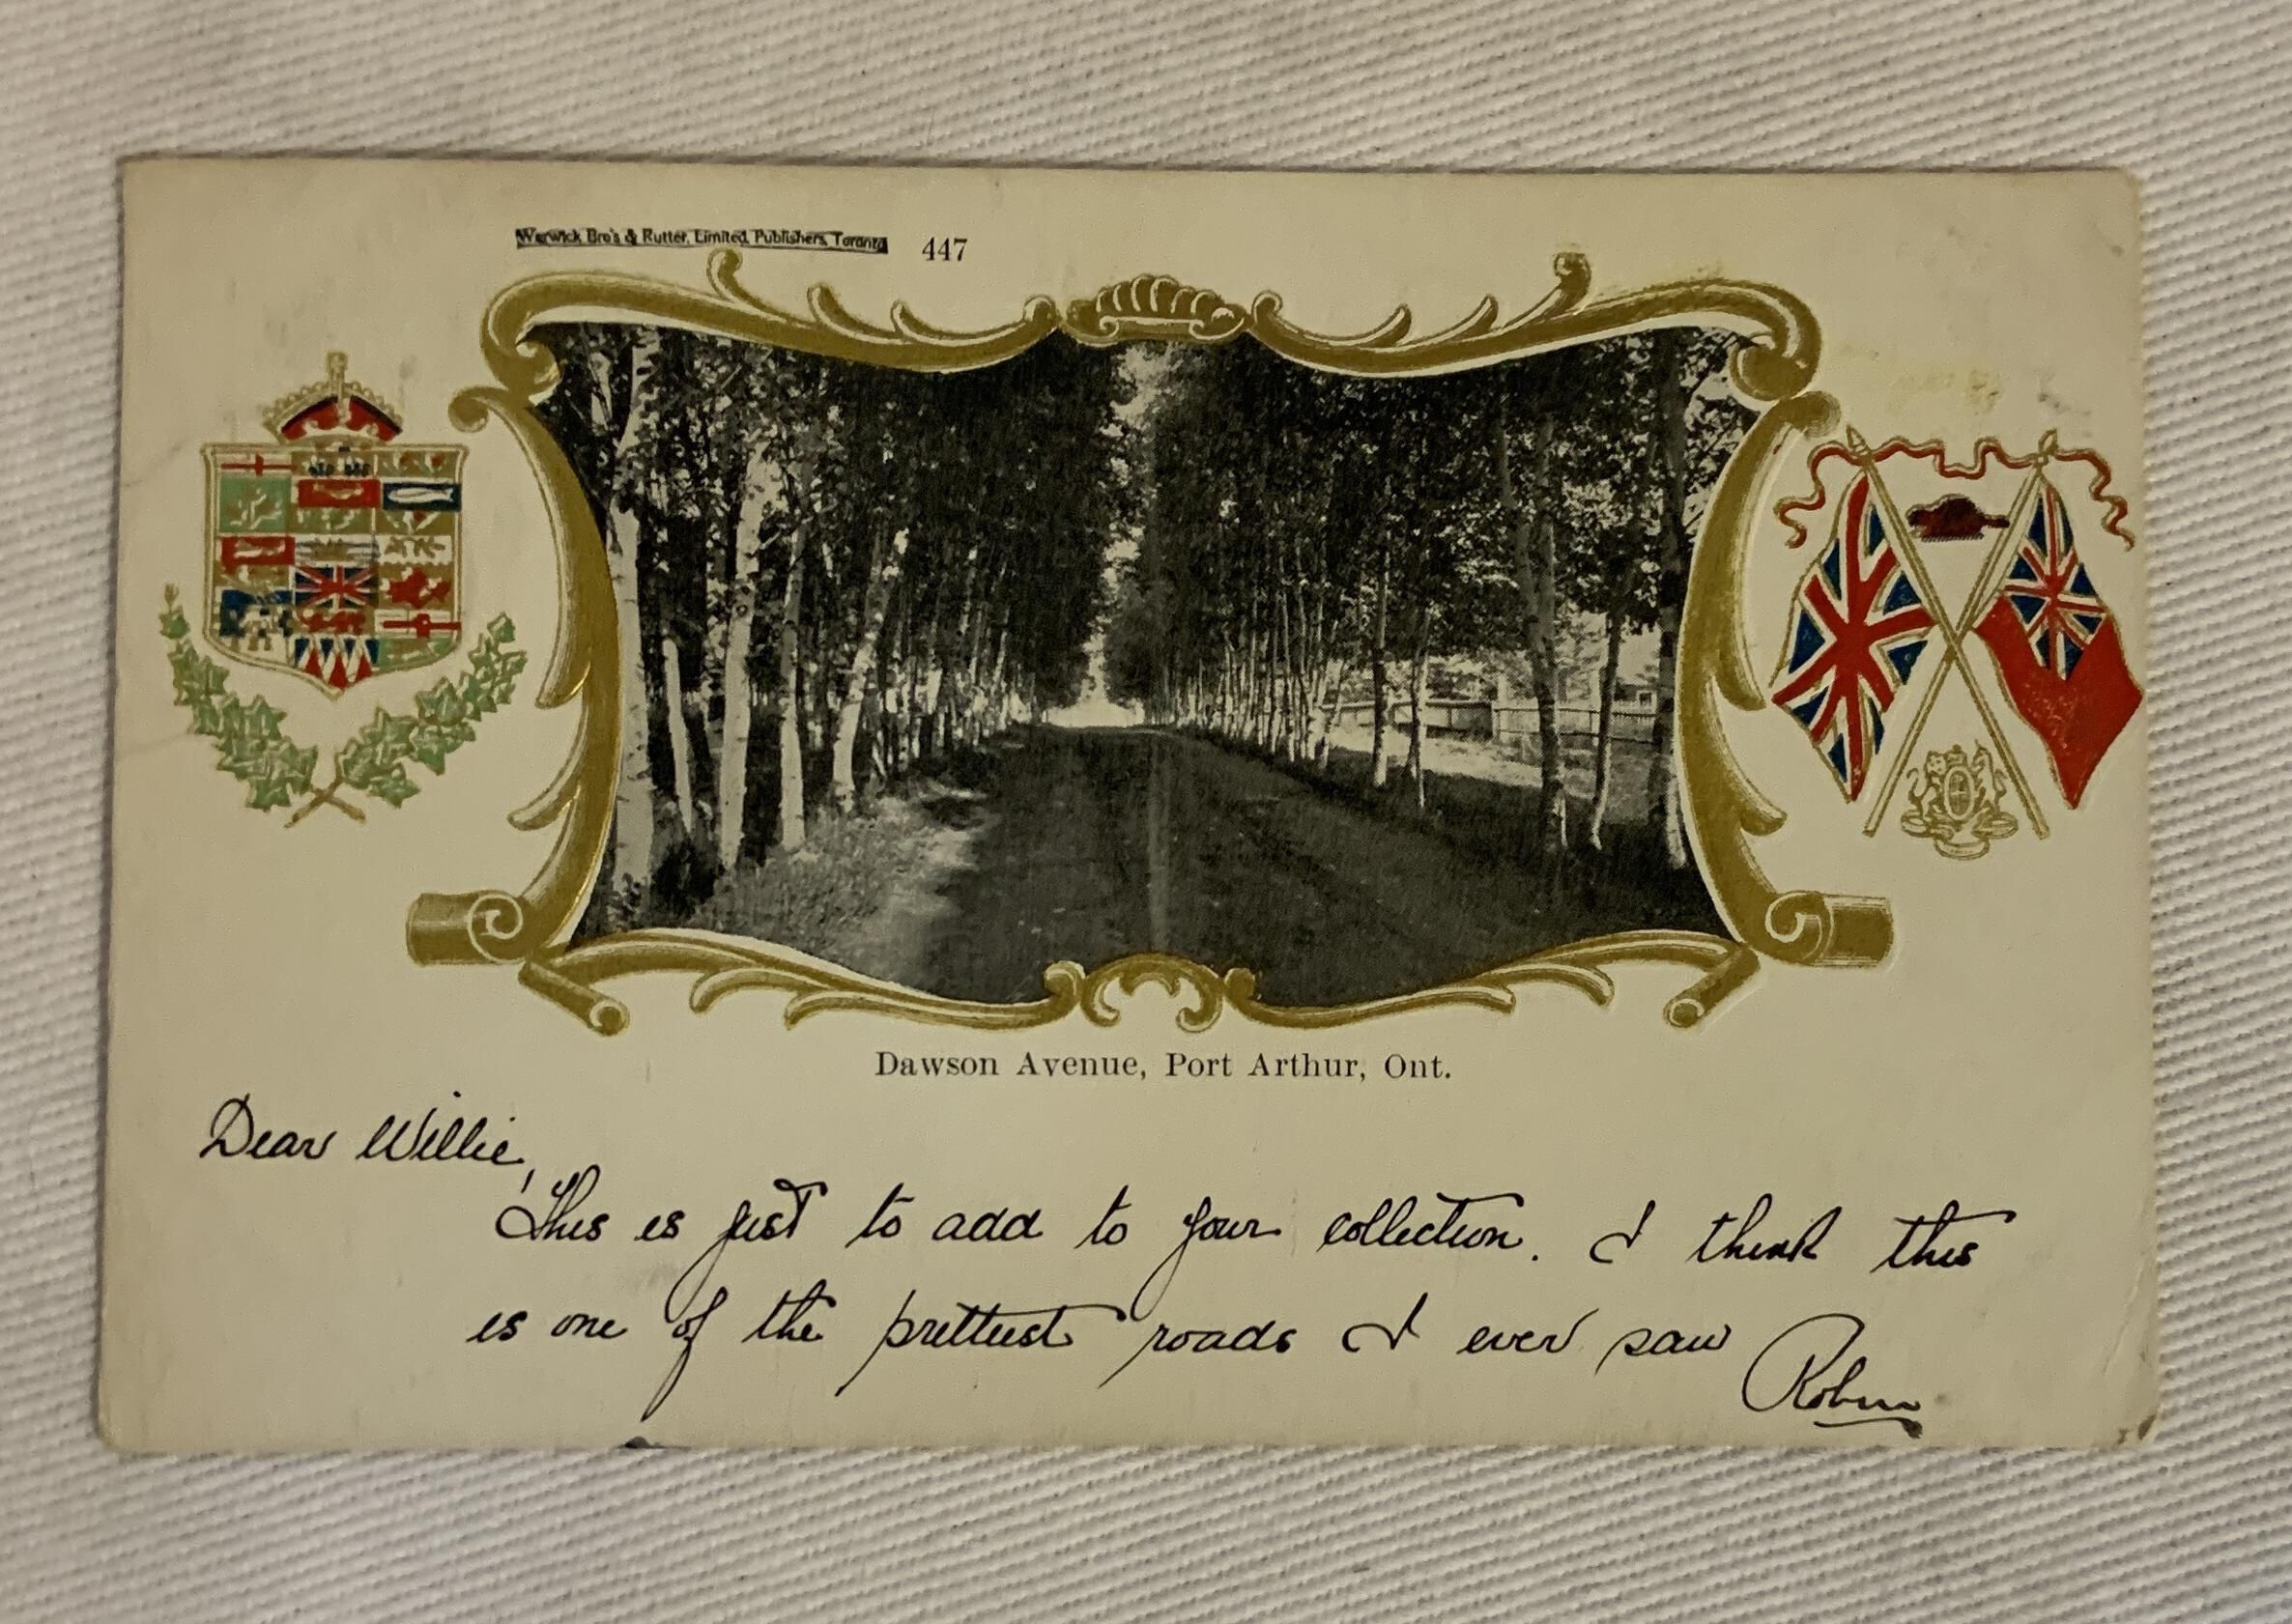 Warwick Bro's & Rutter, Limited, Publishers, Toronto 447
Dawson Avenue, Port Arthur, Ont.
Dear Willie,
This is just to add to your collection. I think this
is one of the prettiest roads I ever saw
Robin